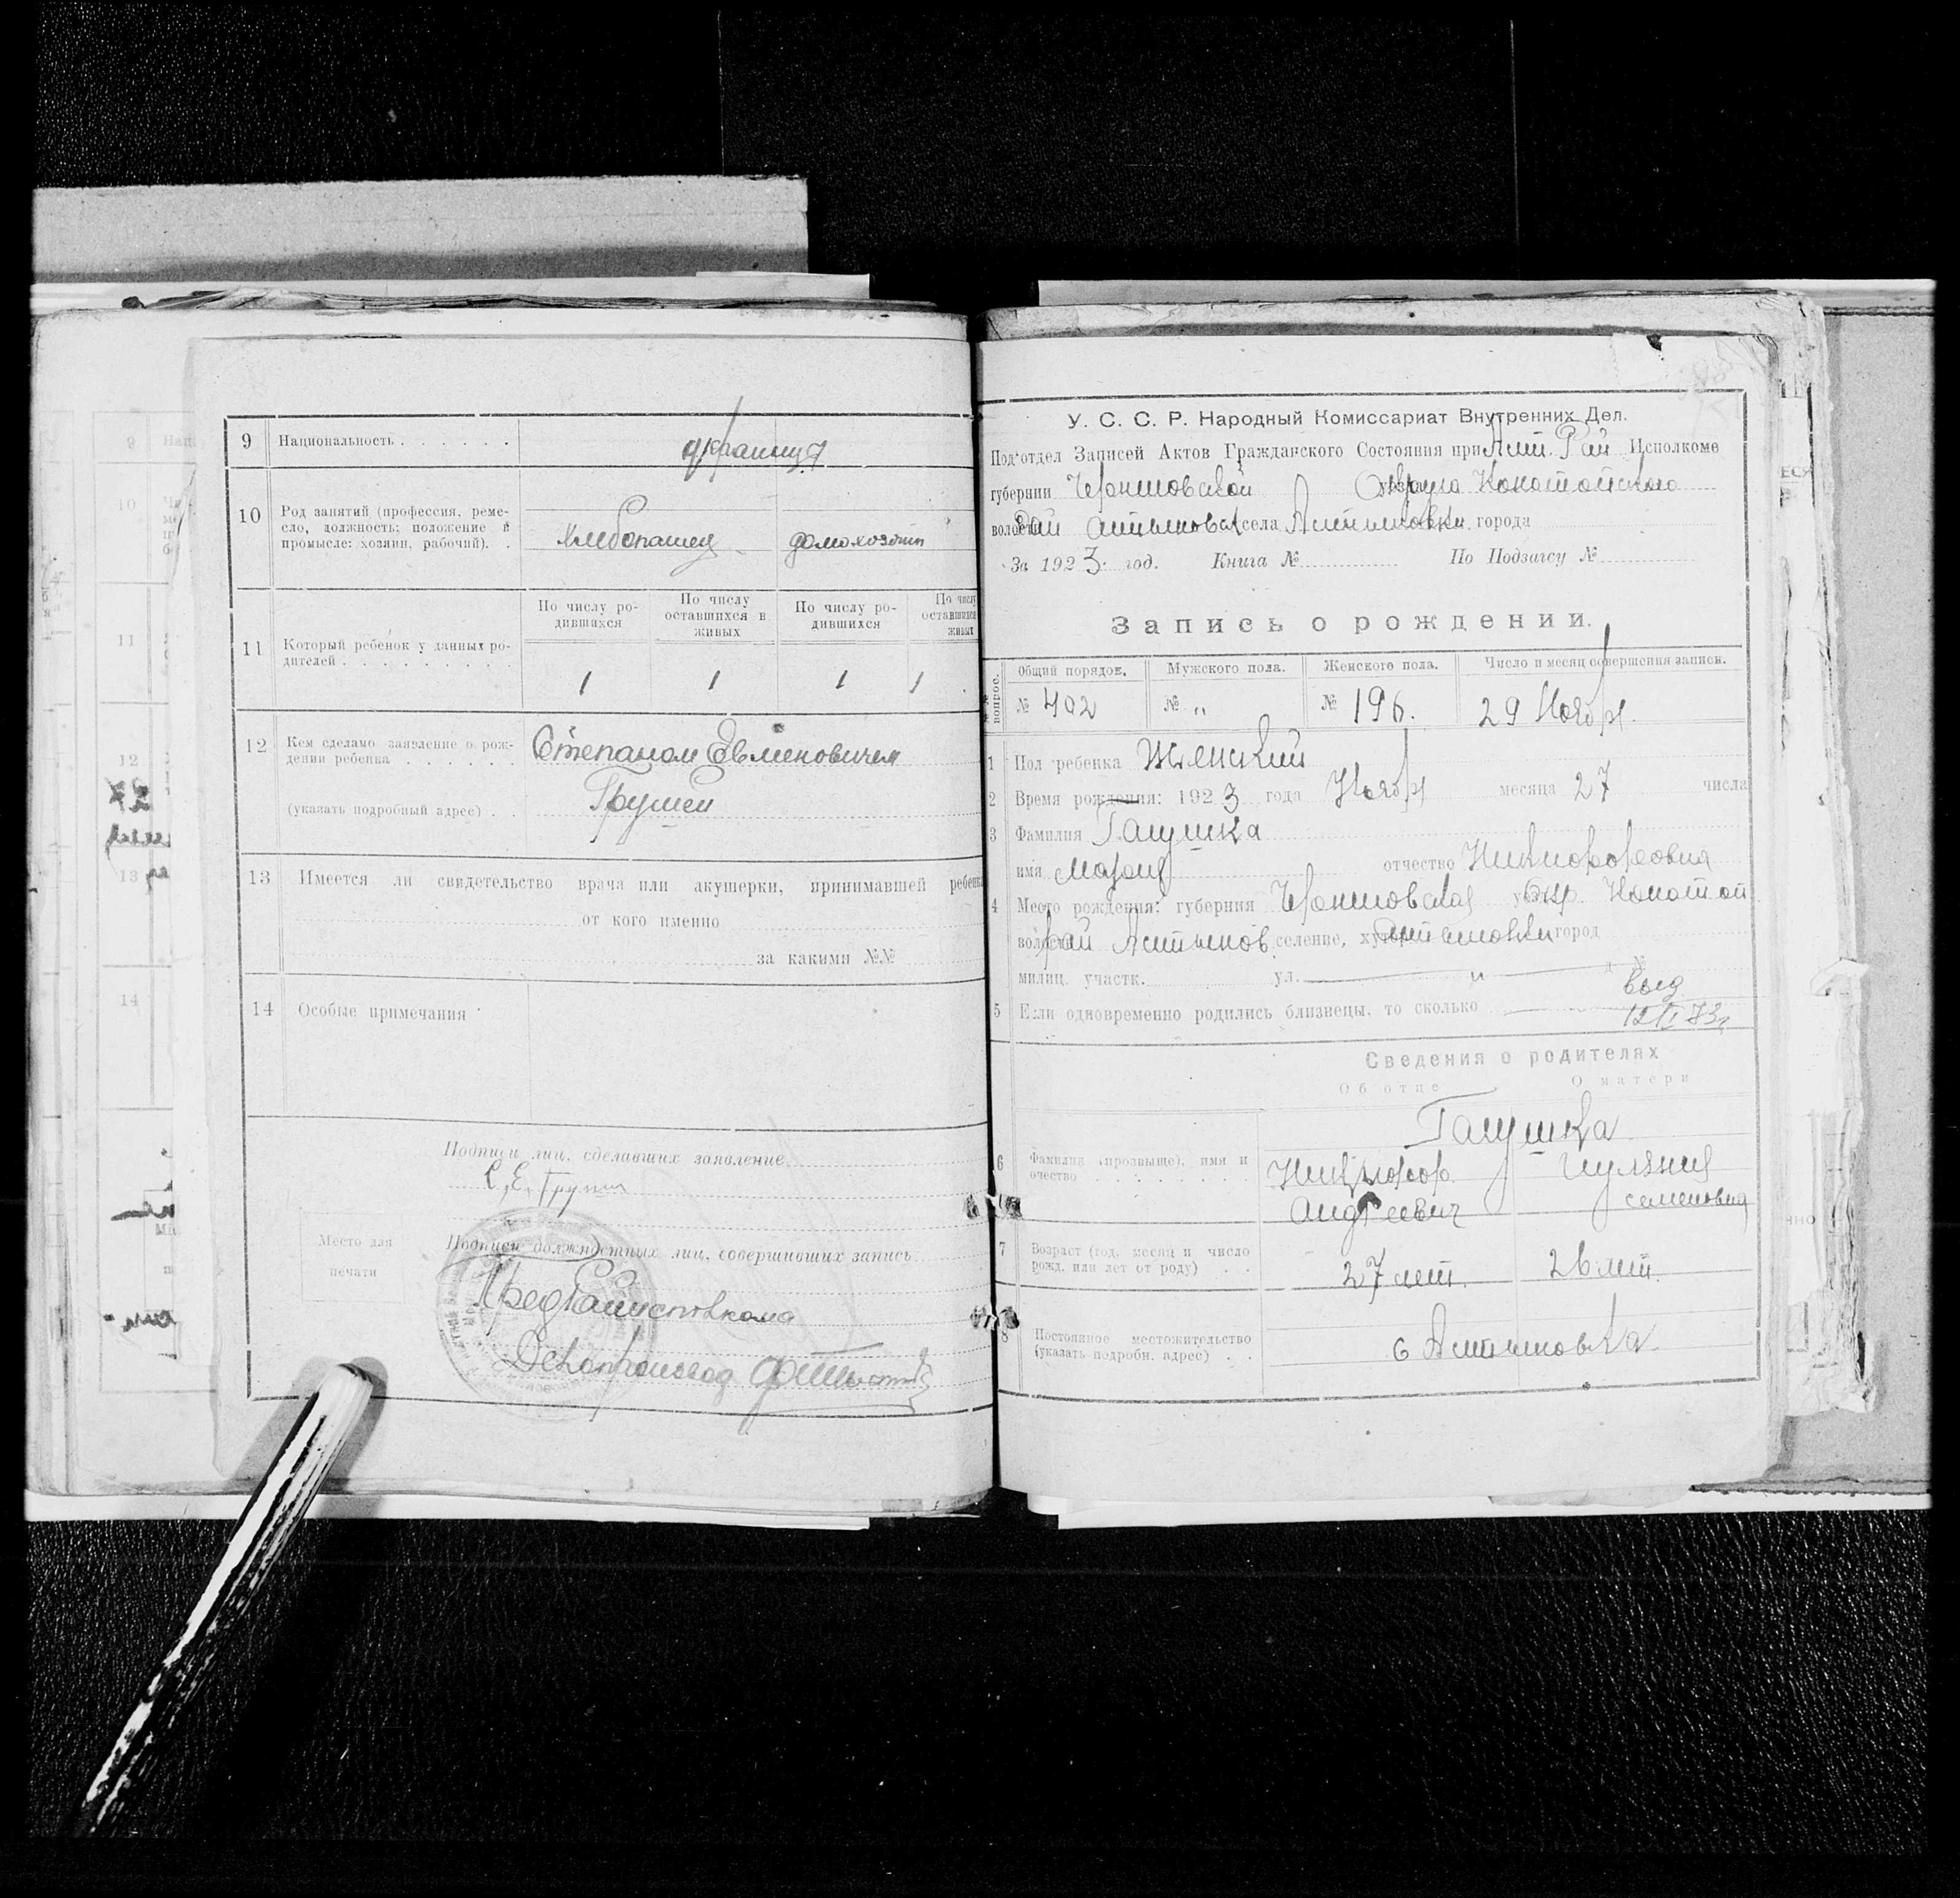 9 Национальность
украинця
10 Род занятий (профессия, реме-
сло, должность; положение в
промысле: хозяин, рабочий).
Хлебопашец домохозяин
11 Который ребенок у данных ро-
дителей
По числу ро-
дившихся
По числу
оставшихся в
живых
По числу ро-
дившихся
По числу
оставшихся
живых
1 1 1 1
12 Кем сделано заявление о рож-
дении ребенка
Степаном Евменовичем
(указать подробный адрес)
Грушей
13 Имеется ли свидетельство врача или акушерки, принимавшей ребенка
от кого именно
за какими №№
14 Особые примечания
Подписи лиц, сделавших заявление
С. Е. Груша
Место для
печати
Подписи должностных лиц, совершивших запись
Пред Райисполкома
Делопроизвод
У. С. С. Р. Народный Комиссариат Внутренних Дел.
Под‘отдел Записей Актов Гражданского Состояния при Алт. Рай Исполкоме
губернии Черниговской Округа Конотопского
волости Рай Алтыновск села Алтыновки города
За 1923 год. Книга № По Подзагсу №
Запись о рождении.
№№ вопрос.
Общий порядок. Мужского пола. Женского пола. Число и месяц совершения записи.
№ 402 № „ № 196. 29 Ноябр.
1 Пол ребенка Женский
2 Время рождения: 1923 года Ноябр месяца 27 числа
3 Фамилия Галушка
имя Мария отчество Никифоровна
4 Место рождения: губерния Черниговская окр. Конотоп
волость рай Алтынов. селение, хутор Алтыновки город
милиц. участк. ул. „ д. №
5 Если одновременно родились близнецы, то сколько
выд
12/I 73г
Сведения о родителях
Об отце О матери
Галушка
6 Фамилия (прозвище), имя и
отчество
Никифор Иуляния
Андреевич семеновна
7 Возраст (год, месяц и число
рожд. или лет от роду)
27 лет. 26 лет.
8 Постоянное местожительство
(указать подробн. адрес)
с Алтыновка